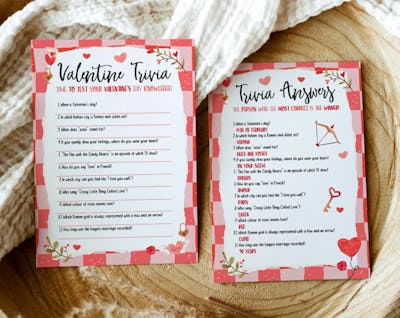 Valentine Trivia
TIME TO TEST YOUR VALENTINE'S DAY KNOWLEDGE!
1. When is Valentine's day?
2. In which Italian city is Romeo and Juliet set?
3. What does "xoxo" stand for?
4. If you openly show your feelings, where do you wear your heart?
5. "The One with the Candy Hearts" is an episode of which TV show?
6. How do you say "love" in French?
7. In which city can you find the "I love you wall"?
8. Who sang "Crazy Little Thing Called Love"?
9. Which colour of roses means love?
10. Which Roman god is always represented with a bow and an arrow?
11. How long was the longest marriage recorded?
Trivia Answers
THE PERSON WITH THE MOST CORRECT IS THE WINNER!
1. When is Valentine's day?
14TH OF FEBRUARY
2. In which Italian city is Romeo and Juliet set?
VERONA
3. What does "xoxo" stand for?
HUGS AND KISSES
4. If you openly show your feelings, where do you wear your heart?
ON YOUR SLEEVE
5. "The One with the Candy Hearts" is an episode of which TV show?
FRIENDS
6. How do you say "love" in French?
AMOUR
7. In which city can you find the "I love you wall"?
PARIS
8. Who sang "Crazy Little Thing Called Love"?
QUEEN
9. Which colour of roses means love?
RED
10. Which Roman god is always represented with a bow and an arrow?
CUPID
11. How long was the longest marriage recorded?
YEARS